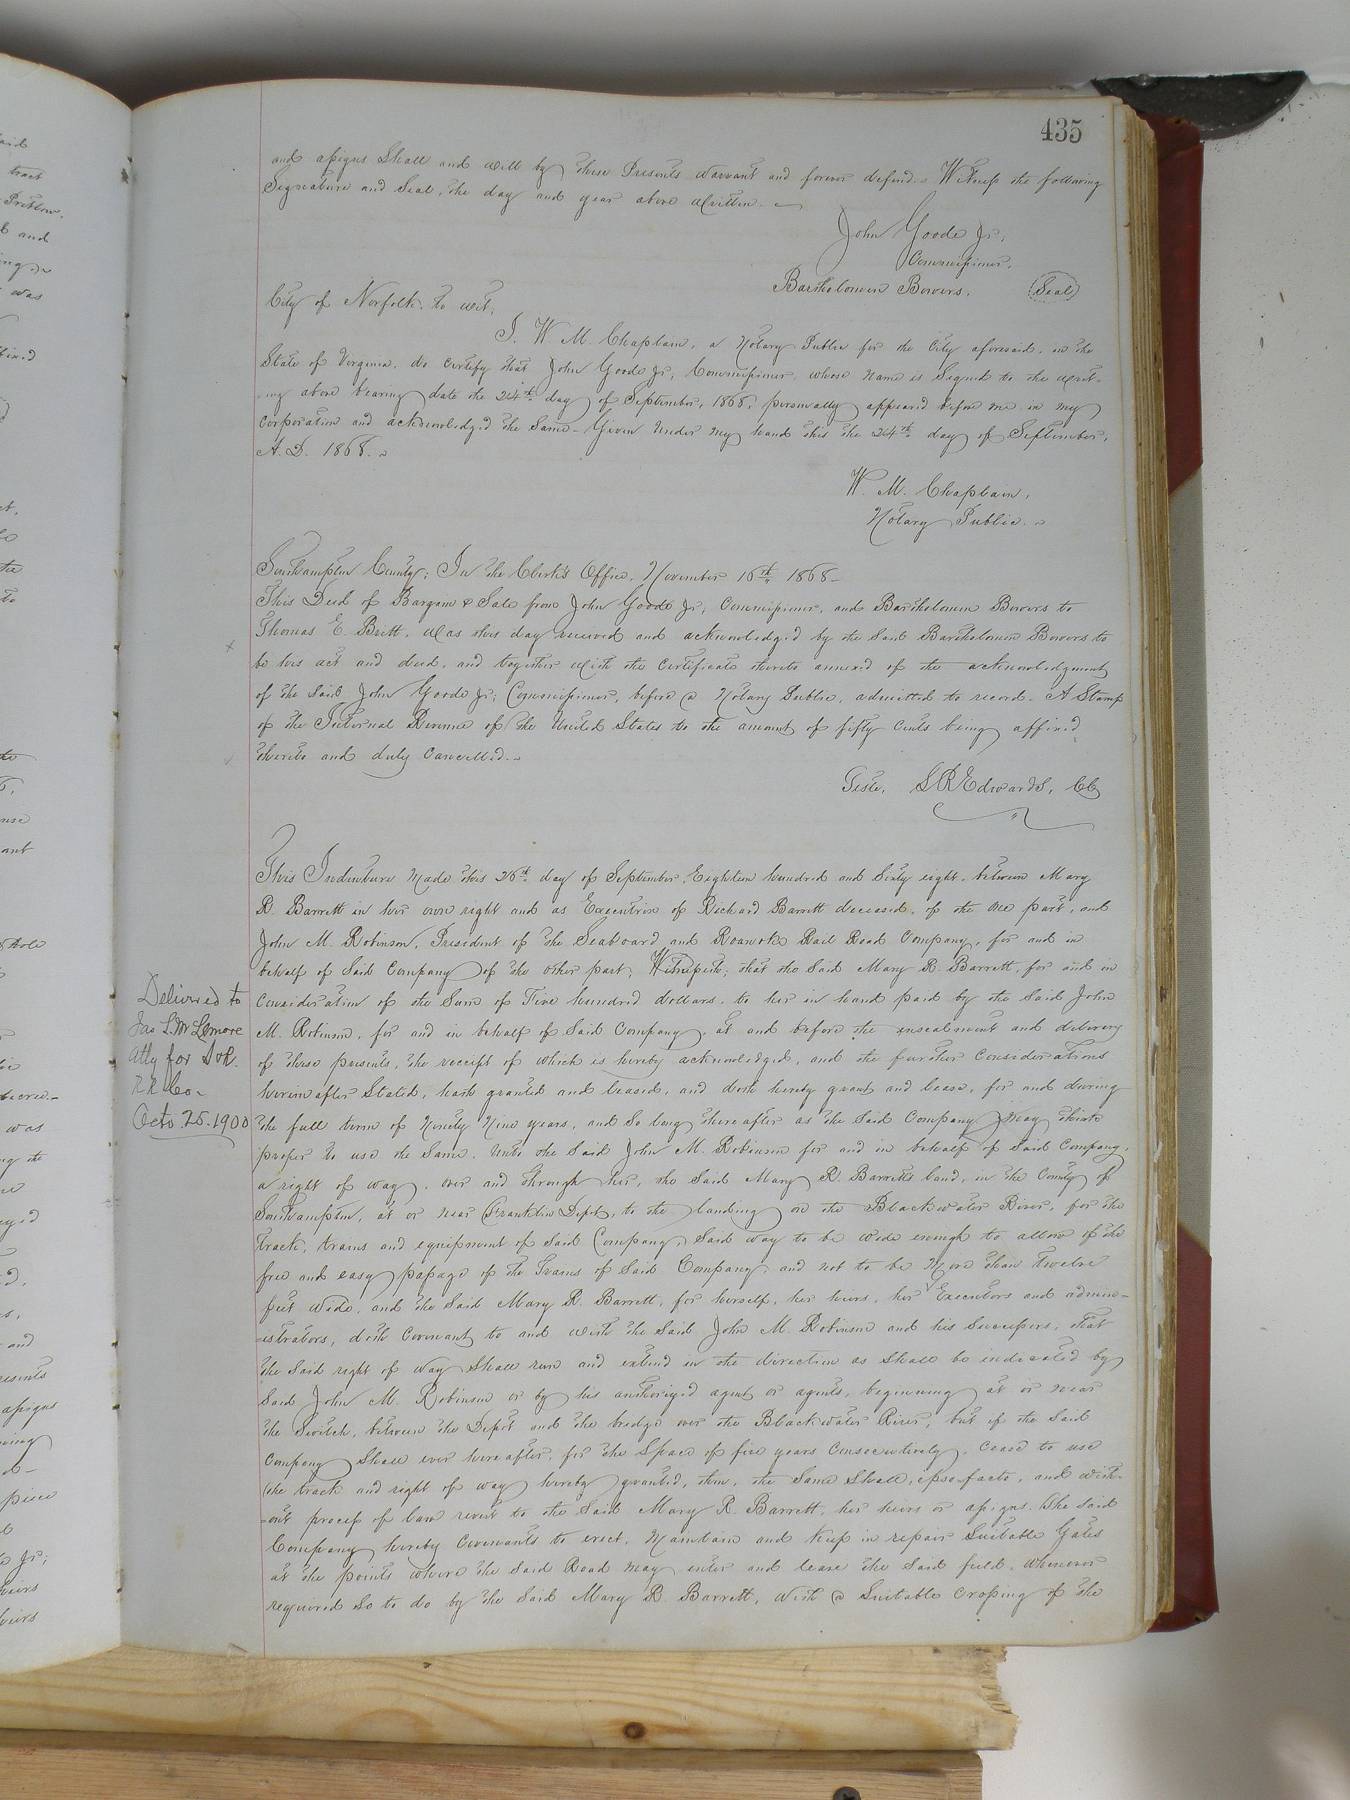 435
and assigns Shall and will by these Presents warrant and forever defend. Witness the following
Signature and Seal, the day and year above written.
John Goode Jr;
Commissioner.
Bartholomew Bowers. (Seal)
City of Norfolk. to wit;
I. W M. Chaplain, a Notary Public for the City aforesaid, in the
State of Virginia, do certify that John Goode Jr; Commissioner, whose name is Signed to the writ-
-ing above bearing date the 24th day of September, 1868, personally appeared before me in my
Corporation and acknowledged the Same. Given Under my hand this the 24th day of September,
A. D. 1868.
W. M. Chaplain,
Notary Public.
Southampton County; In the Clerk's Office, November 16th 1868
This Deed of Bargain & Sale from John Goode Jr; Commissioner, and Bartholomew Bowers to
Thomas E. Britt, was this day received and acknowledged by the said Bartholomew Bowers to
be his act and deed, and together with the Certificate thereto annexed of the acknowledgment
of the said John Goode Jr; Commissioner, before a Notary Public, admitted to record. A Stamp
of the Internal Revenue of the United States to the amount of fifty cents being affixed
thereto and duly cancelled.
Teste, L R Edwards, CC
This Indenture Made this 26th day of September, Eighteen hundred and Sixty eight, between Mary
R. Barrett in her own right and as Executrix of Richard Barrett deceased, of the one part, and
John M. Robinson, President of the Seaboard and Roanoke Rail Road Company, for and in
behalf of Said Company of the other part; Witnesseth; that the Said Mary R. Barrett, for and in
consideration of the Sum of Five hundred dollars, to her in hand paid by the Said John
M. Robinson, for and in behalf of Said Company, at and before the ensealment and delivery
of these presents, the receipt of which is hereby acknowledged, and the further considerations
hereinafter Stated, hath granted and leased, and doth hereby grant and lease, for and during
the full term of Ninety Nine years, and So long thereafter as the Said Company may think
proper to use the Same, Unto the Said John M. Robinson for and in behalf of Said Company,
a right of way, over and through her, the Said Mary R. Barrett's land, in the County of
Southampton, at or near Franklin Depot, to the landing on the Blackwater River, for the
track, trains and equipment of Said Company, Said way to be wide enough to allow of the
free and easy passage of the Trains of Said Company, and not to be More than Twelve
feet wide, and the Said Mary R. Barrett, for herself, her heirs, her Executors and admin-
-istrators, doth Covenant to and with the Said John M. Robinson and his Successors, that
the Said right of way Shall run and extend in the direction as Shall be indicated by
Said John M. Robinson or by his authorized agent or agents, beginning at or near
the Switch, between the Depot and the bridge over the Blackwater River; but if the Said
Company Shall ever hereafter, for the Space of five years Consecutively, Cease to use
the track and right of way hereby granted, then, the Same Shall, ipso facto, and with-
-out process of law revert to the Said Mary R. Barrett, her heirs or assigns. The Said
Company hereby Covenants to erect, Maintain and Keep in repair Suitable Gates
at the points where the Said Road may enter and leave the Said field, whenever
required So to do by the Said Mary R. Barrett, with a Suitable Crossing of the
Delivered to
Jas L. McLemore
Atty for S&R.
R.R. Co.
Octo 25. 1900